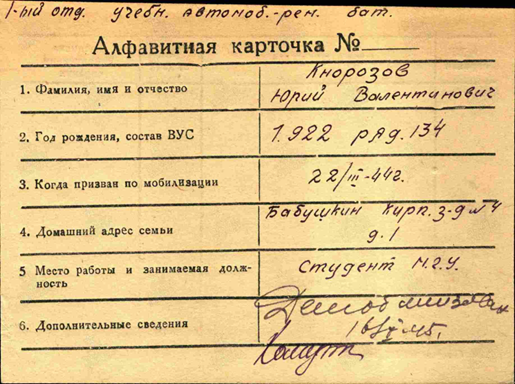 1-ый отд. учебн. автомоб.-рем. бат.
Алфавитная карточка №
1. Фамилия, имя и отчество
Кнорозов
Юрий Валентинович
2. Год рождения, состав ВУС
1922 ряд. 134
3. Когда призван по мобилизации
22/III-44г.
4. Домашний адрес семьи
Бабушкин Кирп. з-д №4
д. 1
5 Место работы и занимаемая долж-
ность
студент М.Г.У.
6. Дополнительные сведения
Демобилизован